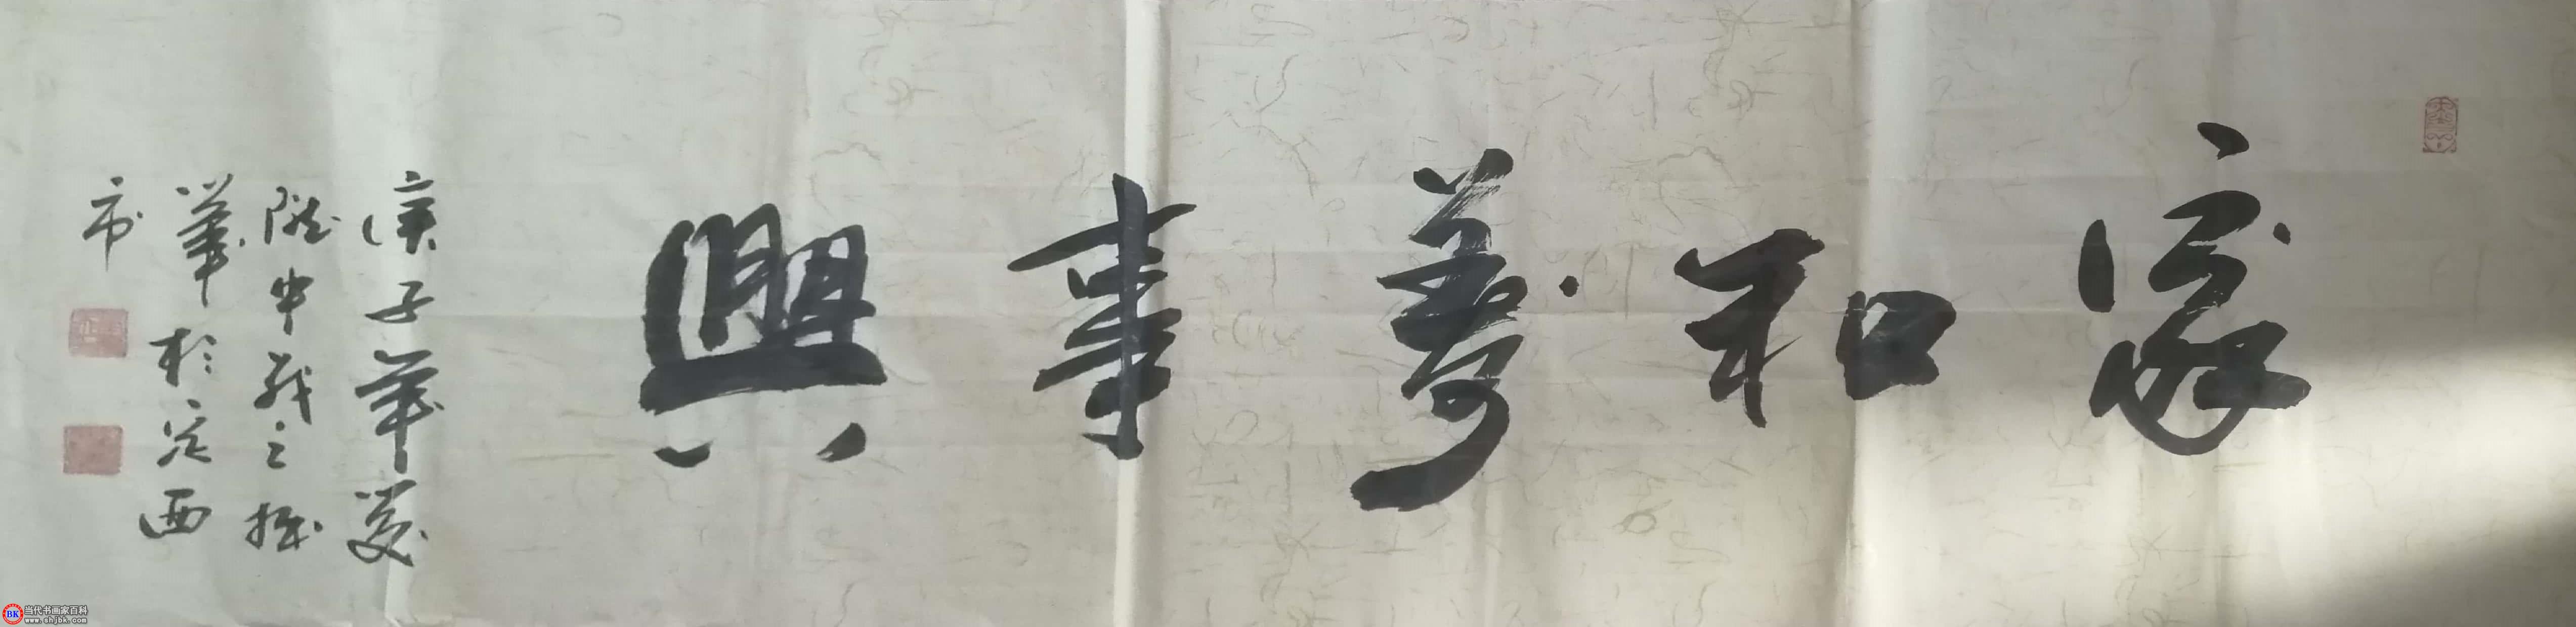 家和萬事興
庚子華夏
隴中戰之振
筆於定西
市
当代书画家百科
www.shjbk.com